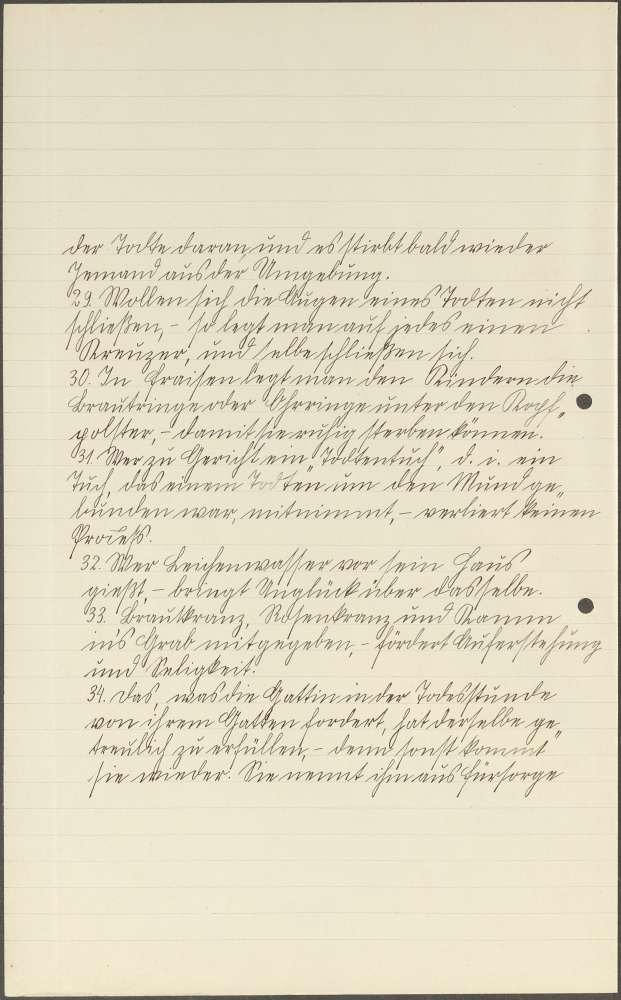 der Todte daran, und es stirbt bald wieder
Jemand aus der Umgebung.
29. Wollen sich die Augen eines Todten nicht
schließen, - so legt man auf jedes einen
Kreuzer, und selbe schließen sich.
30. In Fraisen legt man den Kindern die
Brautringe oder Ohrringe unter den Kopf„
polster, - damit sie ruhig sterben können.
31. Wer zu Gericht ein „Todtentuch“, d. i. ein
Tuch, das einem Todten um den Mund ge„
bunden war, mitnimmt, - verliert keinen
Proceß.
32. Wer Leichenwasser vor sein Haus
gießt, - bringt Unglück über dasselbe.
33. Brautkranz, Rosenkranz und Kamm
in's Grab mitgegeben, - fördert Auferstehung
und Seligkeit.
34. Das, was die Gattin in der Todesstunde
von ihrem Gatten fordert, hat derselbe ge„
treulich zu erfüllen, - denn sonst kommt
sie wieder. Sie nennt ihm aus Fürsorge